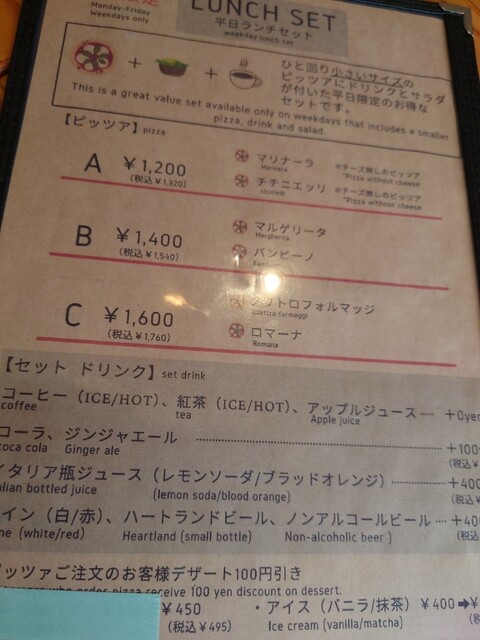 Monday-Friday
Weekdays only
LUNCH SET
平日ランチセット
weekday lunch set
ひと回り小さいサイズの
ピッツアにドリンクとサラダ
が付いた平日限定のお得な
セットです。
This is a great value set available only on weekdays that includes a smaller
pizza, drink and salad.
【ピッツァ】pizza
A ¥1,200
(税込¥1,320)
マリナーラ ※チーズ無しのピッツア
Marinara *Pizza without cheese
チチニエッリ ※チーズ無しのピッツア
*Pizza without cheese
B ¥1,400
(税込¥1,540)
マルゲリータ
Margherita
バンビーノ
C ¥1,600
(税込¥1,760)
クアトロフォルマッジ
quattro formaggi
ロマーナ
Romana
【セット ドリンク】set drink
コーヒー（ICE/HOT）、紅茶（ICE/HOT）、アップルジュース ···· +0yen
coffee tea Apple juice
コーラ、ジンジャエール ···· +100
coca cola Ginger ale (税込
イタリア瓶ジュース（レモンソーダ/ブラッドオレンジ） ···· +400
alian bottled juice (lemon soda/blood orange) (税込
イン（白/赤）、ハートランドビール、ノンアルコールビール ···· +400
ne (white/red) Heartland (small bottle) Non-alcoholic beer ) (税込
ッツァご注文のお客様デザート100円引き
who order pizza receive 100 yen discount on dessert.
¥450 ・アイス（バニラ/抹茶）¥400➡¥
(税込¥495) Ice cream (vanilla/matcha)